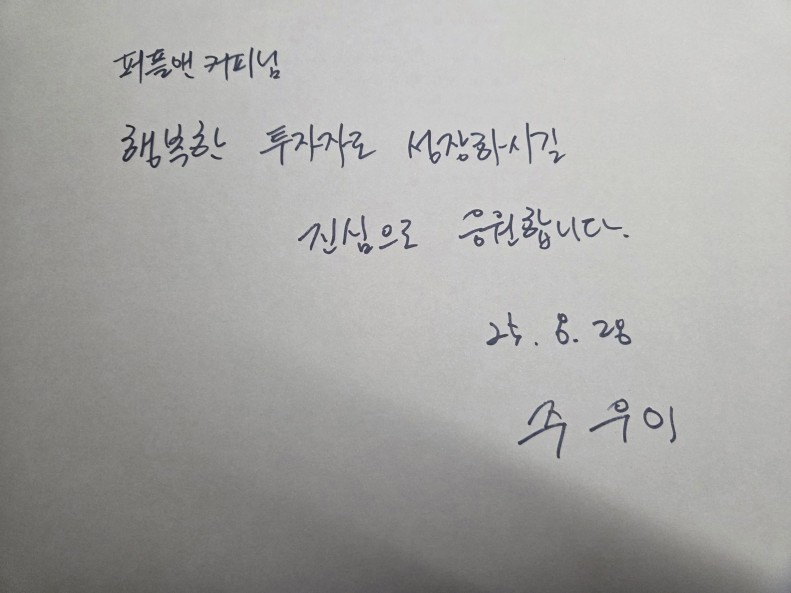 퍼플앤커피님
행복한 투자자로 성장하시길
진심으로 응원합니다.
25. 8. 28
주우이